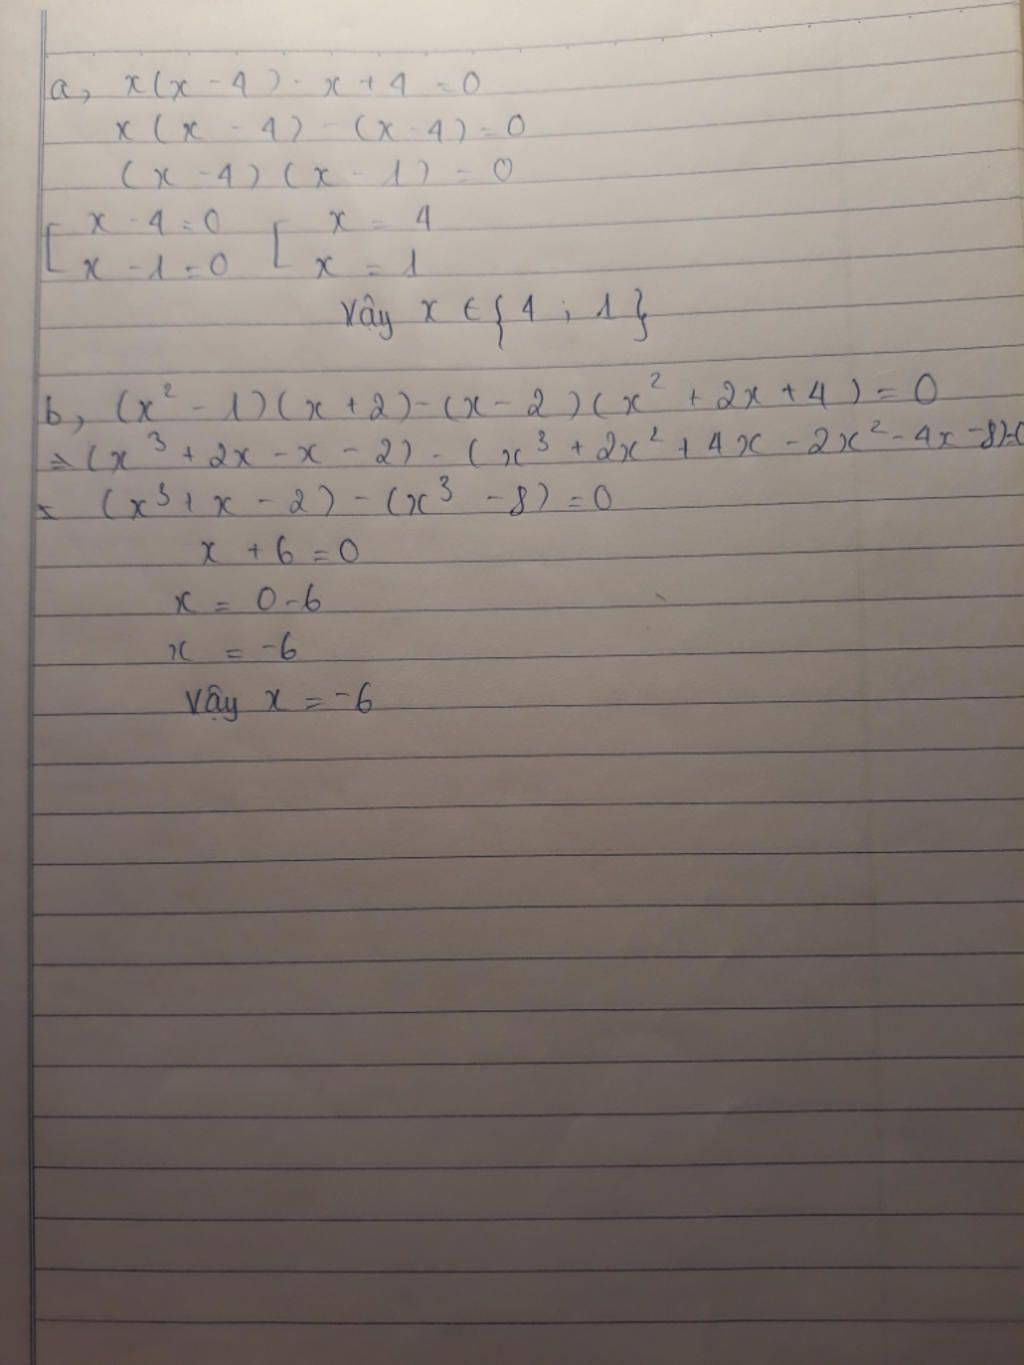 a, x(x - 4) - x + 4 = 0
x(x - 4) - (x - 4) = 0
(x - 4)(x - 1) = 0
[ x - 4 = 0 [ x = 4
[ x - 1 = 0 [ x = 1
Vậy x ∈ {4 ; 1}
b, (x² - 1)(x + 2) - (x - 2)(x² + 2x + 4) = 0
= (x³ + 2x - x - 2) - (x³ + 2x² + 4x - 2x² - 4x - 8) = 0
= (x³ + x - 2) - (x³ - 8) = 0
x + 6 = 0
x = 0 - 6
x = -6
Vậy x = -6